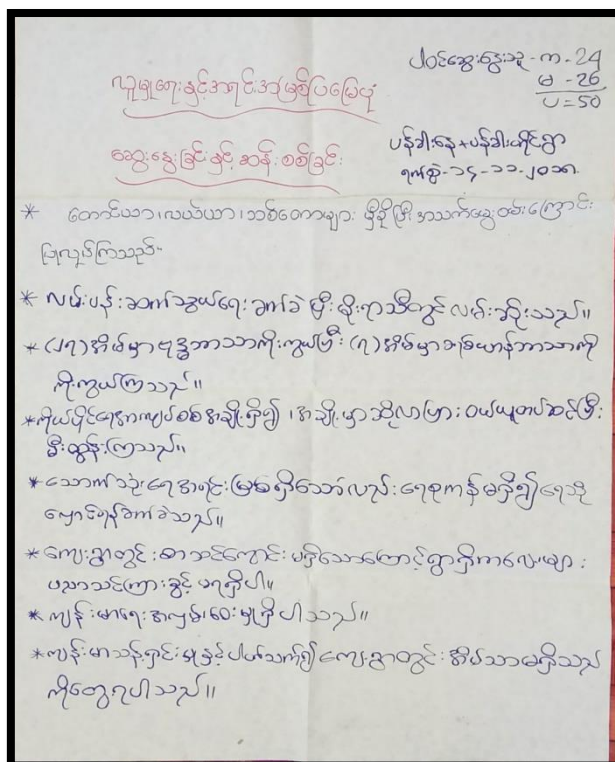 ပါဝင်ဆွေးနွေးသူ - က - 24
မ - 26
ပ = 50
လူမှုရေးနှင့်အရင်းအမြစ်ပြမြေပုံ
ဆွေးနွေးခြင်းနှင့်ဆန်းစစ်ခြင်း
ရက်စွဲ - ၁၄ - ၁၁ - ၂၀၁၈
* တောင်ယာ၊ လယ်ယာ၊ သစ်တောများ မှီခိုပြီး အသက်မွေးဝမ်းကြောင်း
ပြုလုပ်ကြသည်။
* လမ်းပန်းဆက်သွယ်ရေးခက်ခဲ မိုးရာသီတွင်လမ်းဆိုးသည်။
* (၂၇)အိမ်မှာဗုဒ္ဓဘာသာကိုးကွယ်ပြီး (၇)အိမ်မှာခရစ်ယာန်ဘာသာကို
ကိုးကွယ်ကြသည်။
* ကိုယ်ပိုင် အချို့ရှိ၍ ၊ အချို့မှာဆိုလာပြား ဝယ်ယူတပ်ဆင်ပြီး
မီးထွန်းကြသည်။
* သောက်သုံးရေအရင်းမြစ်ရှိသော်လည်းရေစုကန်မရှိ၍ရေသို
လှောင်ရန်ခက်ခဲသည်။
* ကျေးရွာတွင်းစာသင်ကျောင်းမရှိသောကြောင့်ရွာရှိကလေးများ
ပညာသင်ကြားခွင့်မရရှိပါ။
* ကျန်းမာရေးအလှမ်းဝေးမှုရှိပါသည်။
* ကျန်းမာသန့်ရှင်းမှုနှင့်ပါတ်သက်၍ကျေးရွာတွင်းအိမ်သာမရှိသည်
ကိုတွေ့ရပါသည်။